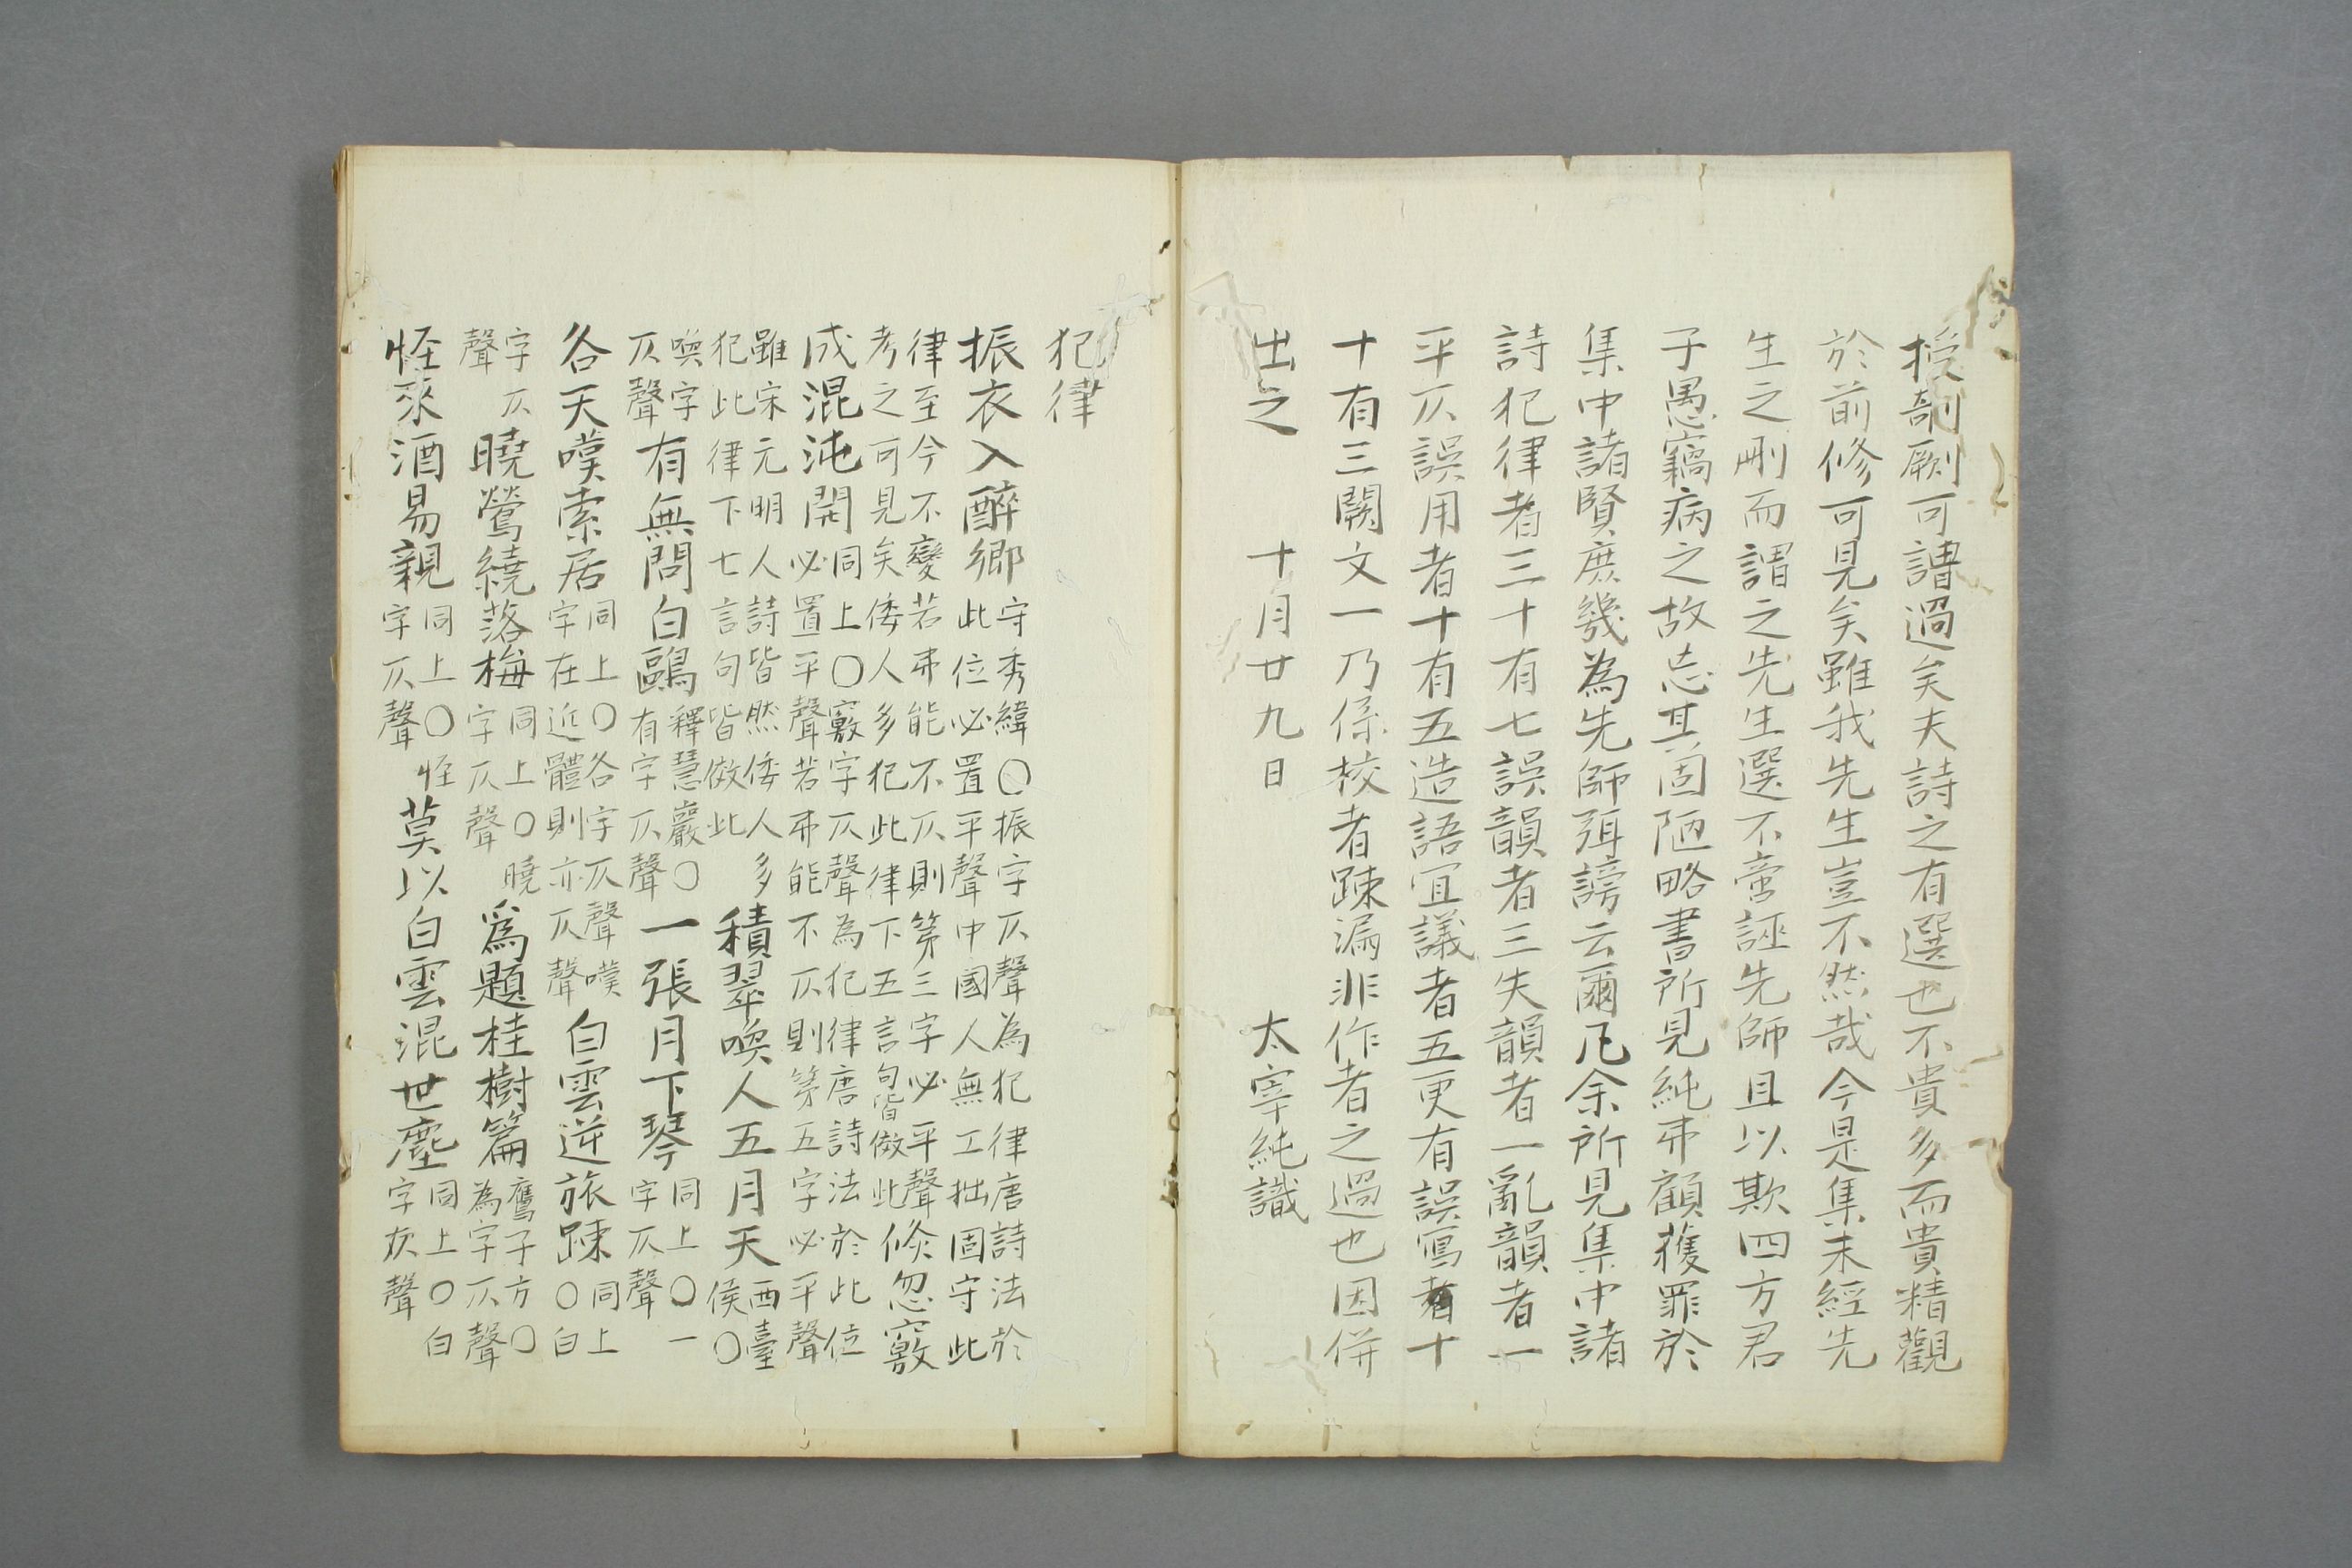 授剞劂可謂過矣夫詩之有選也不貴多而貴精觀
於前修可見矣雖我先生豈不然哉今是集未經先
生之刪而謂之先生選不啻誣先師且以欺四方君
子愚竊病之故忘其固陋略書所見純弗顧獲罪於
集中諸賢庶幾為先師弭謗云爾凡余所見集中諸
詩犯律者三十有七誤韻者三失韻者一亂韻者一
平仄誤用者十有五造語宜議者五更有誤寫者十
十有三闕文一乃係校者踈漏非作者之過也因併
出之　十月廿九日　太宰純識
犯律
振衣入醉鄉 守秀緯○振字仄聲為犯律唐詩法於
此位必置平聲中國人無工拙固守此
律至今不變若弗能不仄則第三字必平聲
考之可見矣倭人多犯此律下五言句皆倣此 倏忽竅
成混沌開 同上○竅字仄聲為犯律唐詩法於此位
必置平聲若弗能不仄則第五字必平聲
雖宋元明人詩皆然倭人多
犯此律下七言句皆倣此 積翠喚人五月天 西臺
侯○
喚字
仄聲 有無問白鷗 釋慧巖○
有字仄聲 一張月下琴 同上○一
字仄聲
各天嘆索居 同上○各字仄聲嘆
字在近體則亦仄聲 白雲逆旅踈 同上
○白
字仄
聲 曉鶯繞落梅 同上○曉
字仄聲 爲題桂樹篇 鷹子方○
為字仄聲
怪來酒易親 同上○怪
字仄聲 莫以白雲混世塵 同上○白
字仄聲